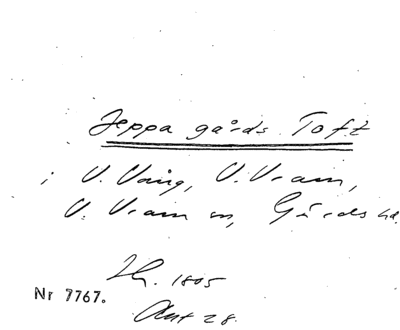 Jeppa gårds Toft
i V. Vång, V. Vram,
V. Vram sn, Gärds hd.
Lh. 1805
Nr 7767.
Akt 28.